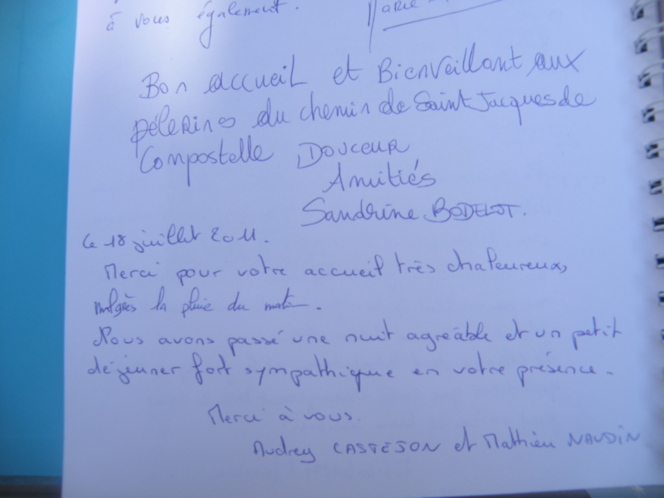 à vous également.
Marie
Bon accueil et Bienveillant aux
pélerins du chemin de Saint Jacques de
Compostelle Douceur
Amitiés
Sandrine BODELOT.
Le 18 juillet 2011.
Merci pour votre accueil très chaleureux,
malgrès la pluie du matin.
Nous avons passé une nuit agréable et un petit
déjeuner fort sympathique en votre présence.
Merci à vous.
Audrey CASTESON et Mathieu NAUDIN